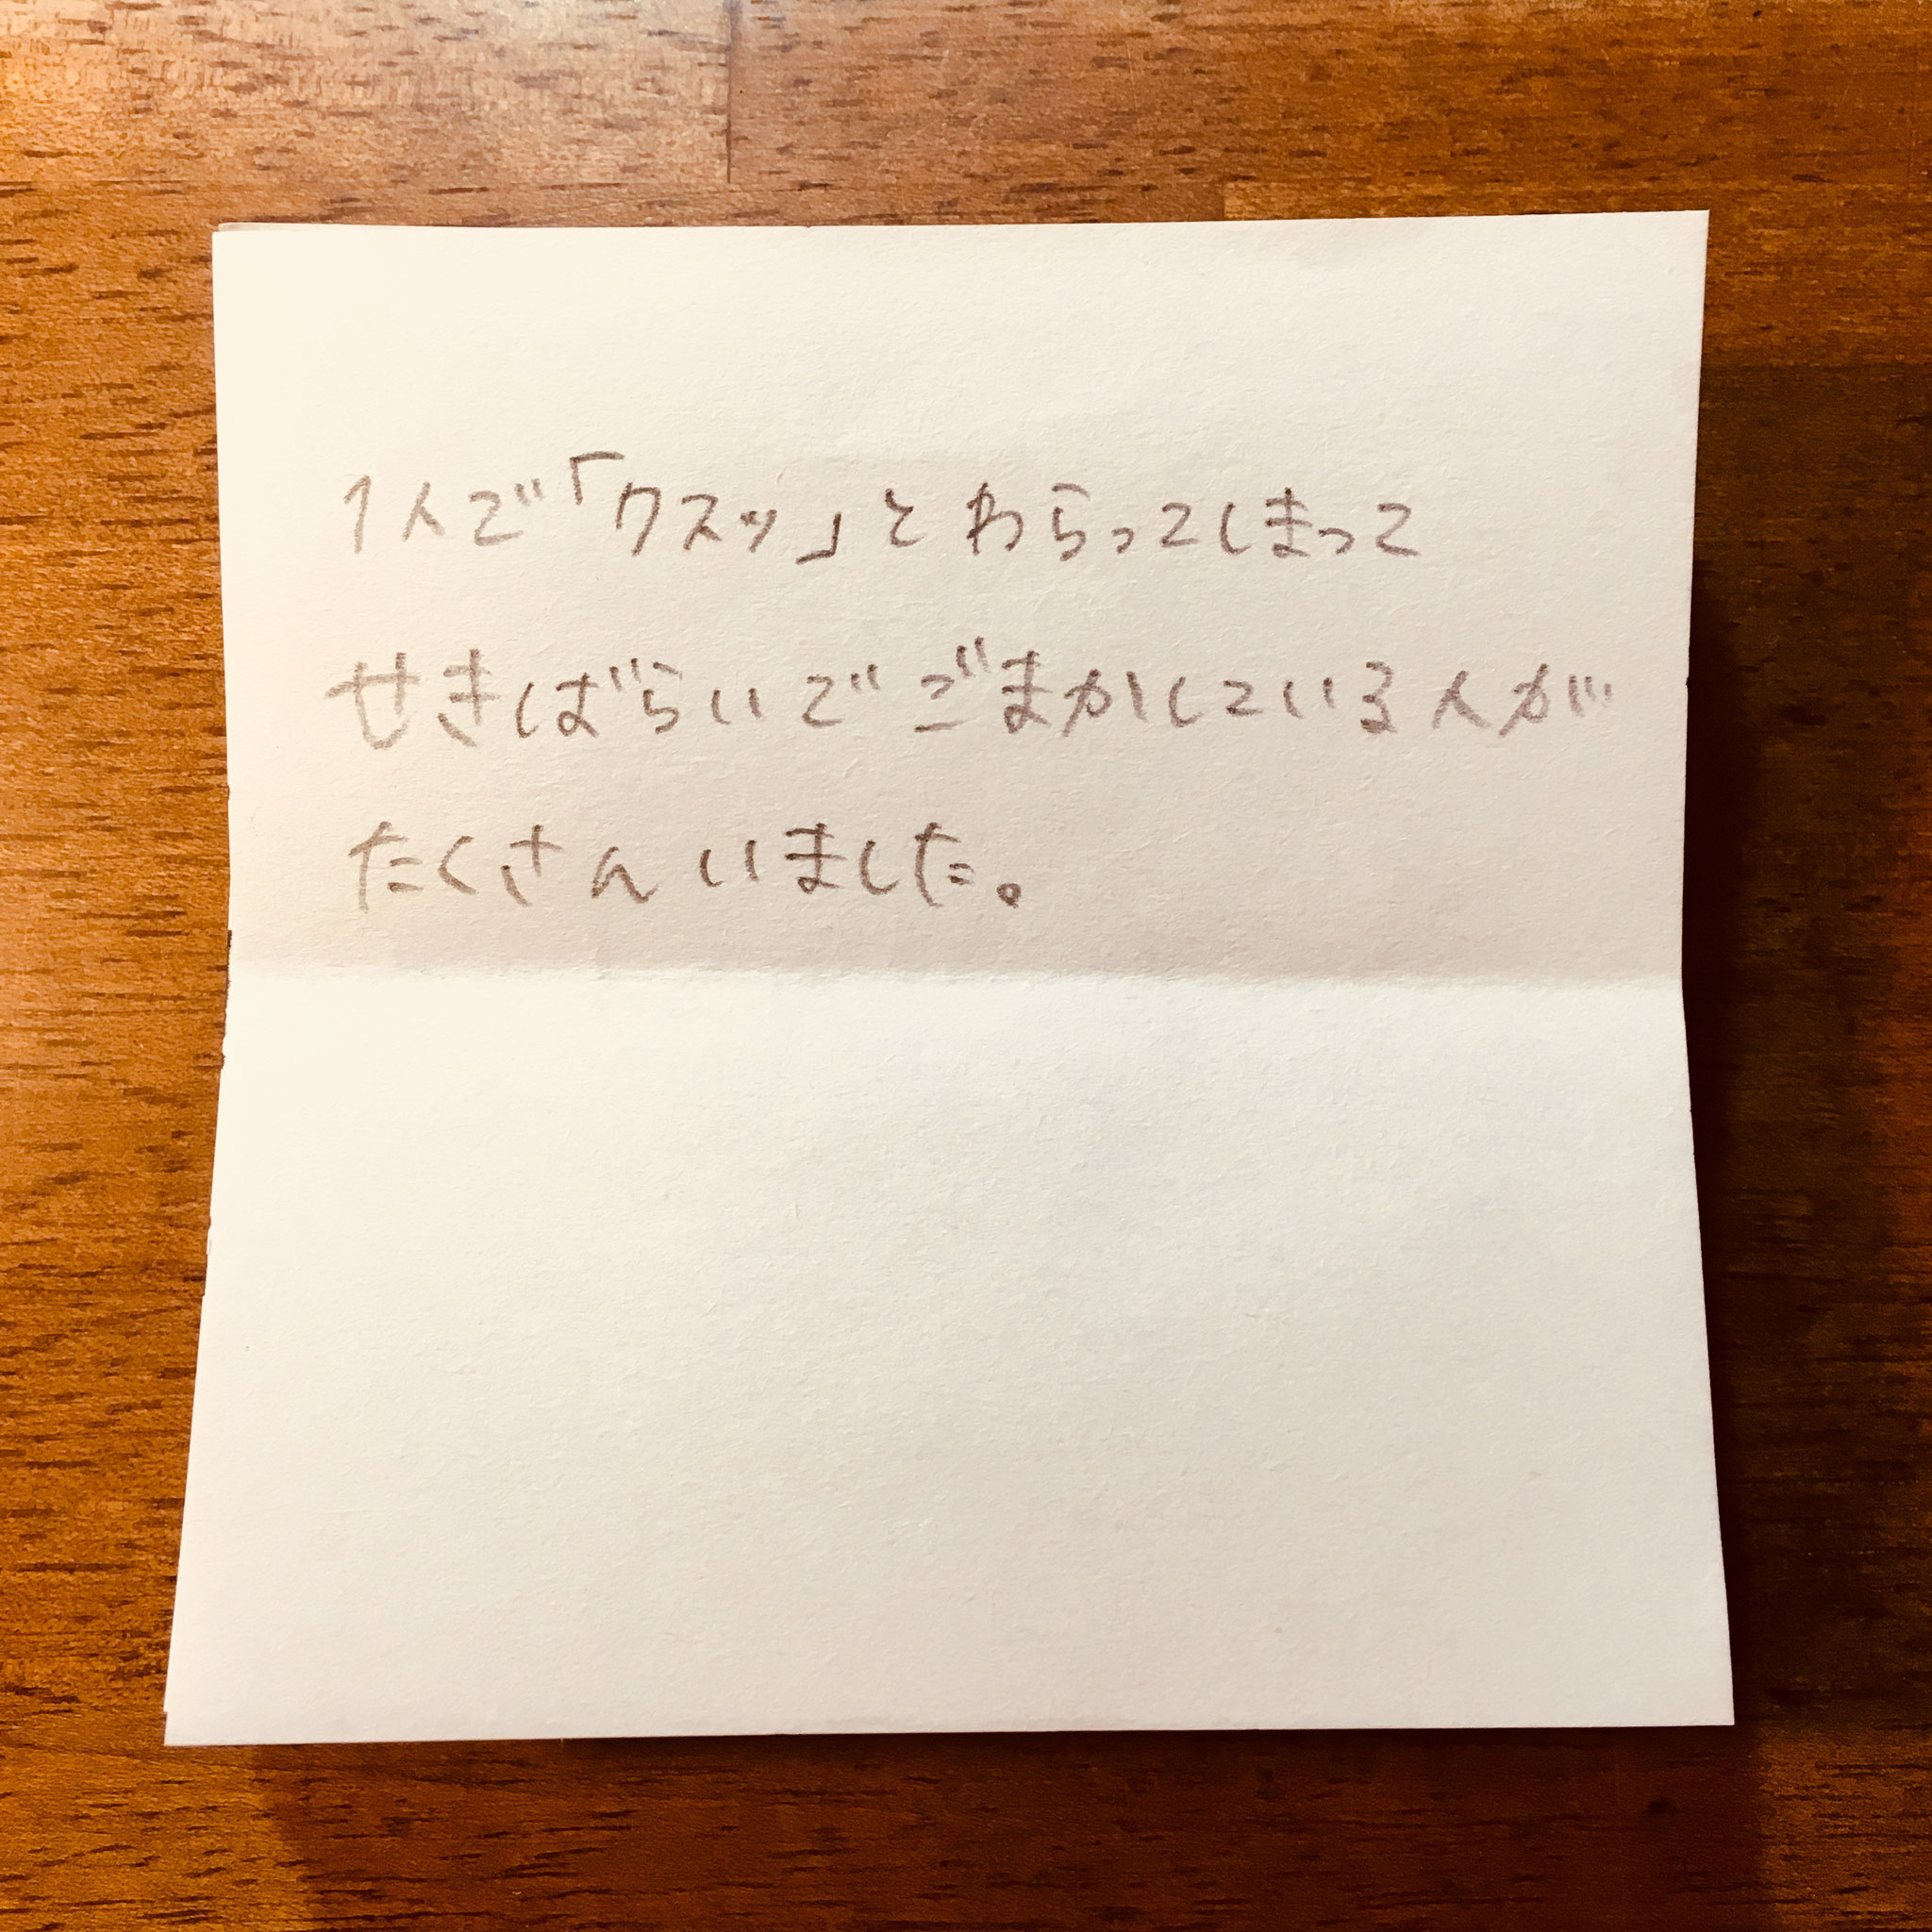 1人で「クスッ」とわらってしまって
せきばらいでごまかしている人が
たくさんいました。